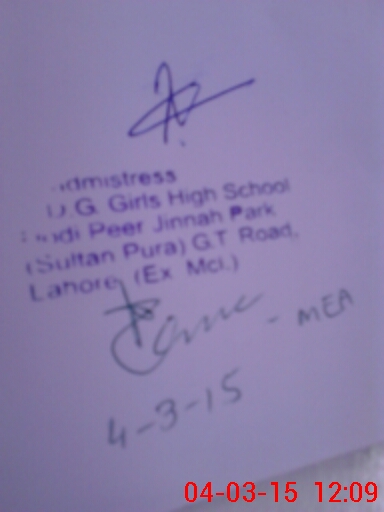 dmistress
.G. Girls High School
di Peer Jinnah Park
(Sultan Pura) G.T Road,
Lahore (Ex Mcl.)
- MEA
4-3-15
04-03-15 12:09